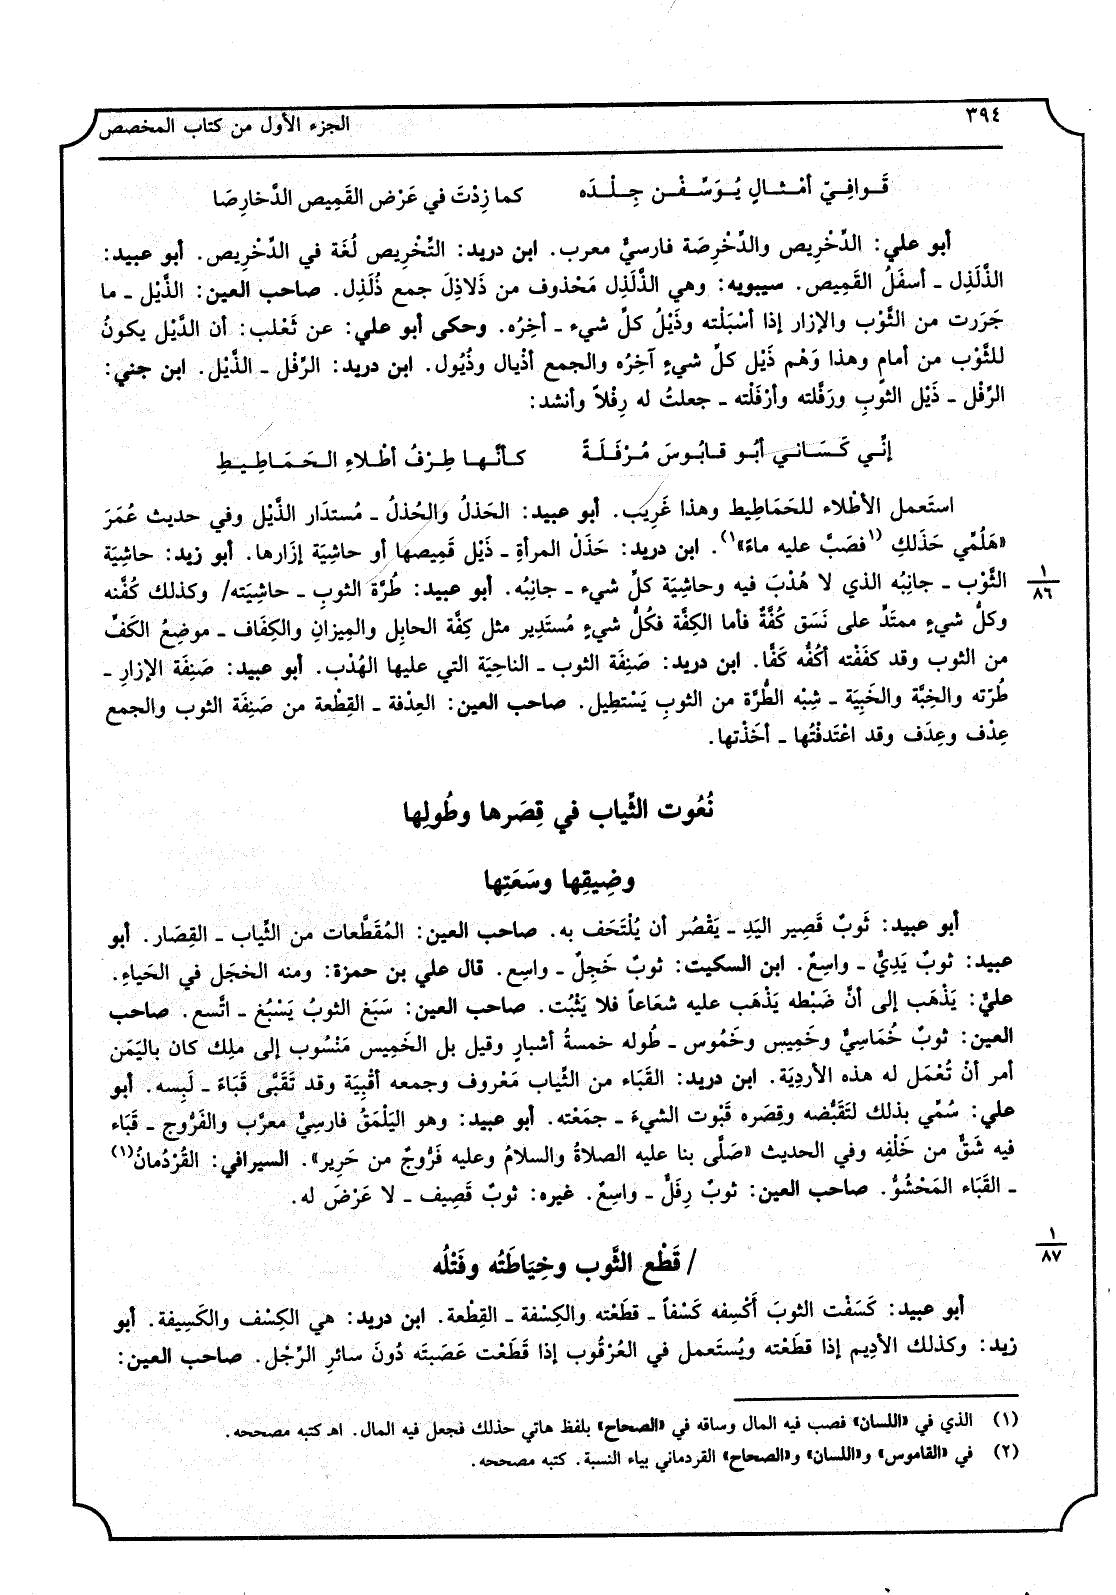 ٣٩٤
الجزء الأول من كتاب المخصص
قَـوافِـيّ أمْـثـالٍ يُـوَسِّـفْـن جِـلْـدَه كما زِدْتَ في عَرْض القَمِيص الدَّخارِصَا
أبو علي: الدِّخْرِيص والدِّخْرِصَة فارسيٌّ معرب. ابن دريد: التِّخْرِيص لُغَة في الدِّخْرِيص. أبو عبيد:
الذَّلَذِل ـ أسفَلُ القَمِيص. سيبويه: وهي الذَّلَذِل مَحْذوف من ذَلاذِلَ جمع ذُلَذِل. صاحب العين: الذَّيْل ـ ما
جَرَرت من الثَّوْب والإزار إذا أسْبَلْته وذَيْلُ كلِّ شيء ـ أخِرُه. وحكى أبو علي: عن ثَعْلب: أن الذَّيْل يكونُ
للثَّوْب من أمامٍ وهذا وَهْم ذَيْل كلِّ شيءٍ آخِرُه والجمع أذْيال وذُيُول. ابن دريد: الرِّفْل ـ الذَّيْل. ابن جني:
الرِّفْل ـ ذَيْل الثوبِ ورَفَّلته وأرْفَلْته ـ جعلتُ له رِفْلاً وأنشد:
إنِّـي كَـسَـانـي أبُـو قـابُـوسَ مُـرْفَـلَـةً كـأنَّـهـا طِـرْفُ أطْـلاءِ الـحَـمَـاطِـيـطِ
استَعمل الأطْلاء للحَمَاطِيط وهذا غَرِيب. أبو عبيد: الحَذلُ والحُذلُ ـ مُستدَار الذَّيْل وفي حديث عُمَرَ
«هَلُمِّي حَذَلكِ (١فصَبَّ عليه ماءً»١). ابن دريد: حَذَلَ المرأةِ ـ ذَيْل قَمِيصها أو حاشِيَة إزَارها. أبو زيد: حاشِيَة
الثَّوْب ـ جانِبُه الذي لا هُدْبَ فيه وحاشِيَة كلِّ شيء ـ جانِبُه. أبو عبيد: طُرَّة الثوبِ ـ حاشِيَته/ وكذلك كُفَّته
١
٨٦
وكلُّ شيءٍ ممتَدٍّ على نَسَق كُفَّةٌ فأما الكِفَّة فكُلُّ شيءٍ مُستَدِير مثل كِفَّة الحابِل والمِيزانِ والكِفَاف ـ موضِعُ الكَفِّ
من الثوب وقد كفَفْته أكُفُّه كَفًّا. ابن دريد: صَنِفَة الثوب ـ الناحِيَة التي عليها الهُدْب. أبو عبيد: صَنِفَة الإزارِ ـ
طُرّته والخِبَّة والخَبِيَة ـ شِبْه الطُّرَّة من الثوبِ يَسْتطِيل. صاحب العين: العِذْفة ـ القِطْعة من صَنِفَة الثوب والجمع
عِذْف وعِذَف وقد اعْتَذفْتُها ـ أخَذْتها.
نُعُوت الثِّياب في قِصَرها وطُولِها
وضِيقِها وسَعَتِها
أبو عبيد: ثَوبٌ قَصِير اليَدِ ـ يَقْصُر أن يُلْتَحَف به. صاحب العين: المُقَطَّعات من الثِّياب ـ القِصَار. أبو
عبيد: ثوبٌ يَدِيٌّ ـ واسِعٌ. ابن السكيت: ثوبٌ خَجِلٌ ـ واسِع. قال علي بن حمزة: ومنه الخجَل في الحَياءِ.
عليٌّ: يَذْهَب إلى أنَّ ضَبْطه يَذْهَب عليه شعَاعاً فلا يَثْبُت. صاحب العين: سَبَغ الثوبُ يَسْبُغ ـ اتَّسع. صاحب
العين: ثوبٌ خُمَاسِيٌّ وخَمِيس وخَمُوس ـ طُوله خمسةُ أشبارٍ وقيل بل الخَمِيس مَنْسُوب إلى ملِك كان باليَمَن
أمر أنْ تُعْمَل له هذه الأردِيَة. ابن دريد: القَبَاء من الثِّياب مَعْروف وجمعه أقْبِيَة وقد تَقَبَّى قَبَاءً ـ لَبِسه. أبو
علي: سُمِّي بذلك لتَقَبُّضه وقِصَره قَبْوت الشيءَ ـ جمَعْته. أبو عبيد: وهو اليَلْمَقُ فارسِيٌّ معرَّب والفَرُّوج ـ قَبَاء
فيه شَقٌّ من خَلْفِه وفي الحديث «صَلَّى بنا عليه الصلاةُ والسلامُ وعليه فَرُّوجٌ من حَرِير». السيرافي: القُرْدُمانُ(١)
ـ القَبَاء المَحْشُوُّ. صاحب العين: ثوبٌ رِفَلٌّ ـ واسِعٌ. غيره: ثوبٌ قَصِيف ـ لا عَرْضَ له.
١
٨٧
/ قَطْع الثَّوب وخِيَاطَتُه وفَتْلُه
أبو عبيد: كَسَفْت الثوبَ أَكْسِفه كَسْفاً ـ قطَعْته والكِسْفة ـ القِطْعة. ابن دريد: هي الكِسْف والكَسِيفة. أبو
زيد: وكذلك الأدِيم إذا قطَعْته ويُستَعمل في العُرْقُوب إذا قَطَعْت عَصَبتَه دُونَ سائرِ الرِّجْل. صاحب العين:
(١) الذي في «اللسان» فصب فيه المال وساقه في «الصحاح» بلفظ هاتي حذلك فجعل فيه المال. اهـ كتبه مصححه.
(٢) في «القاموس» و«اللسان» و«الصحاح» القردماني بياء النسبة. كتبه مصححه.